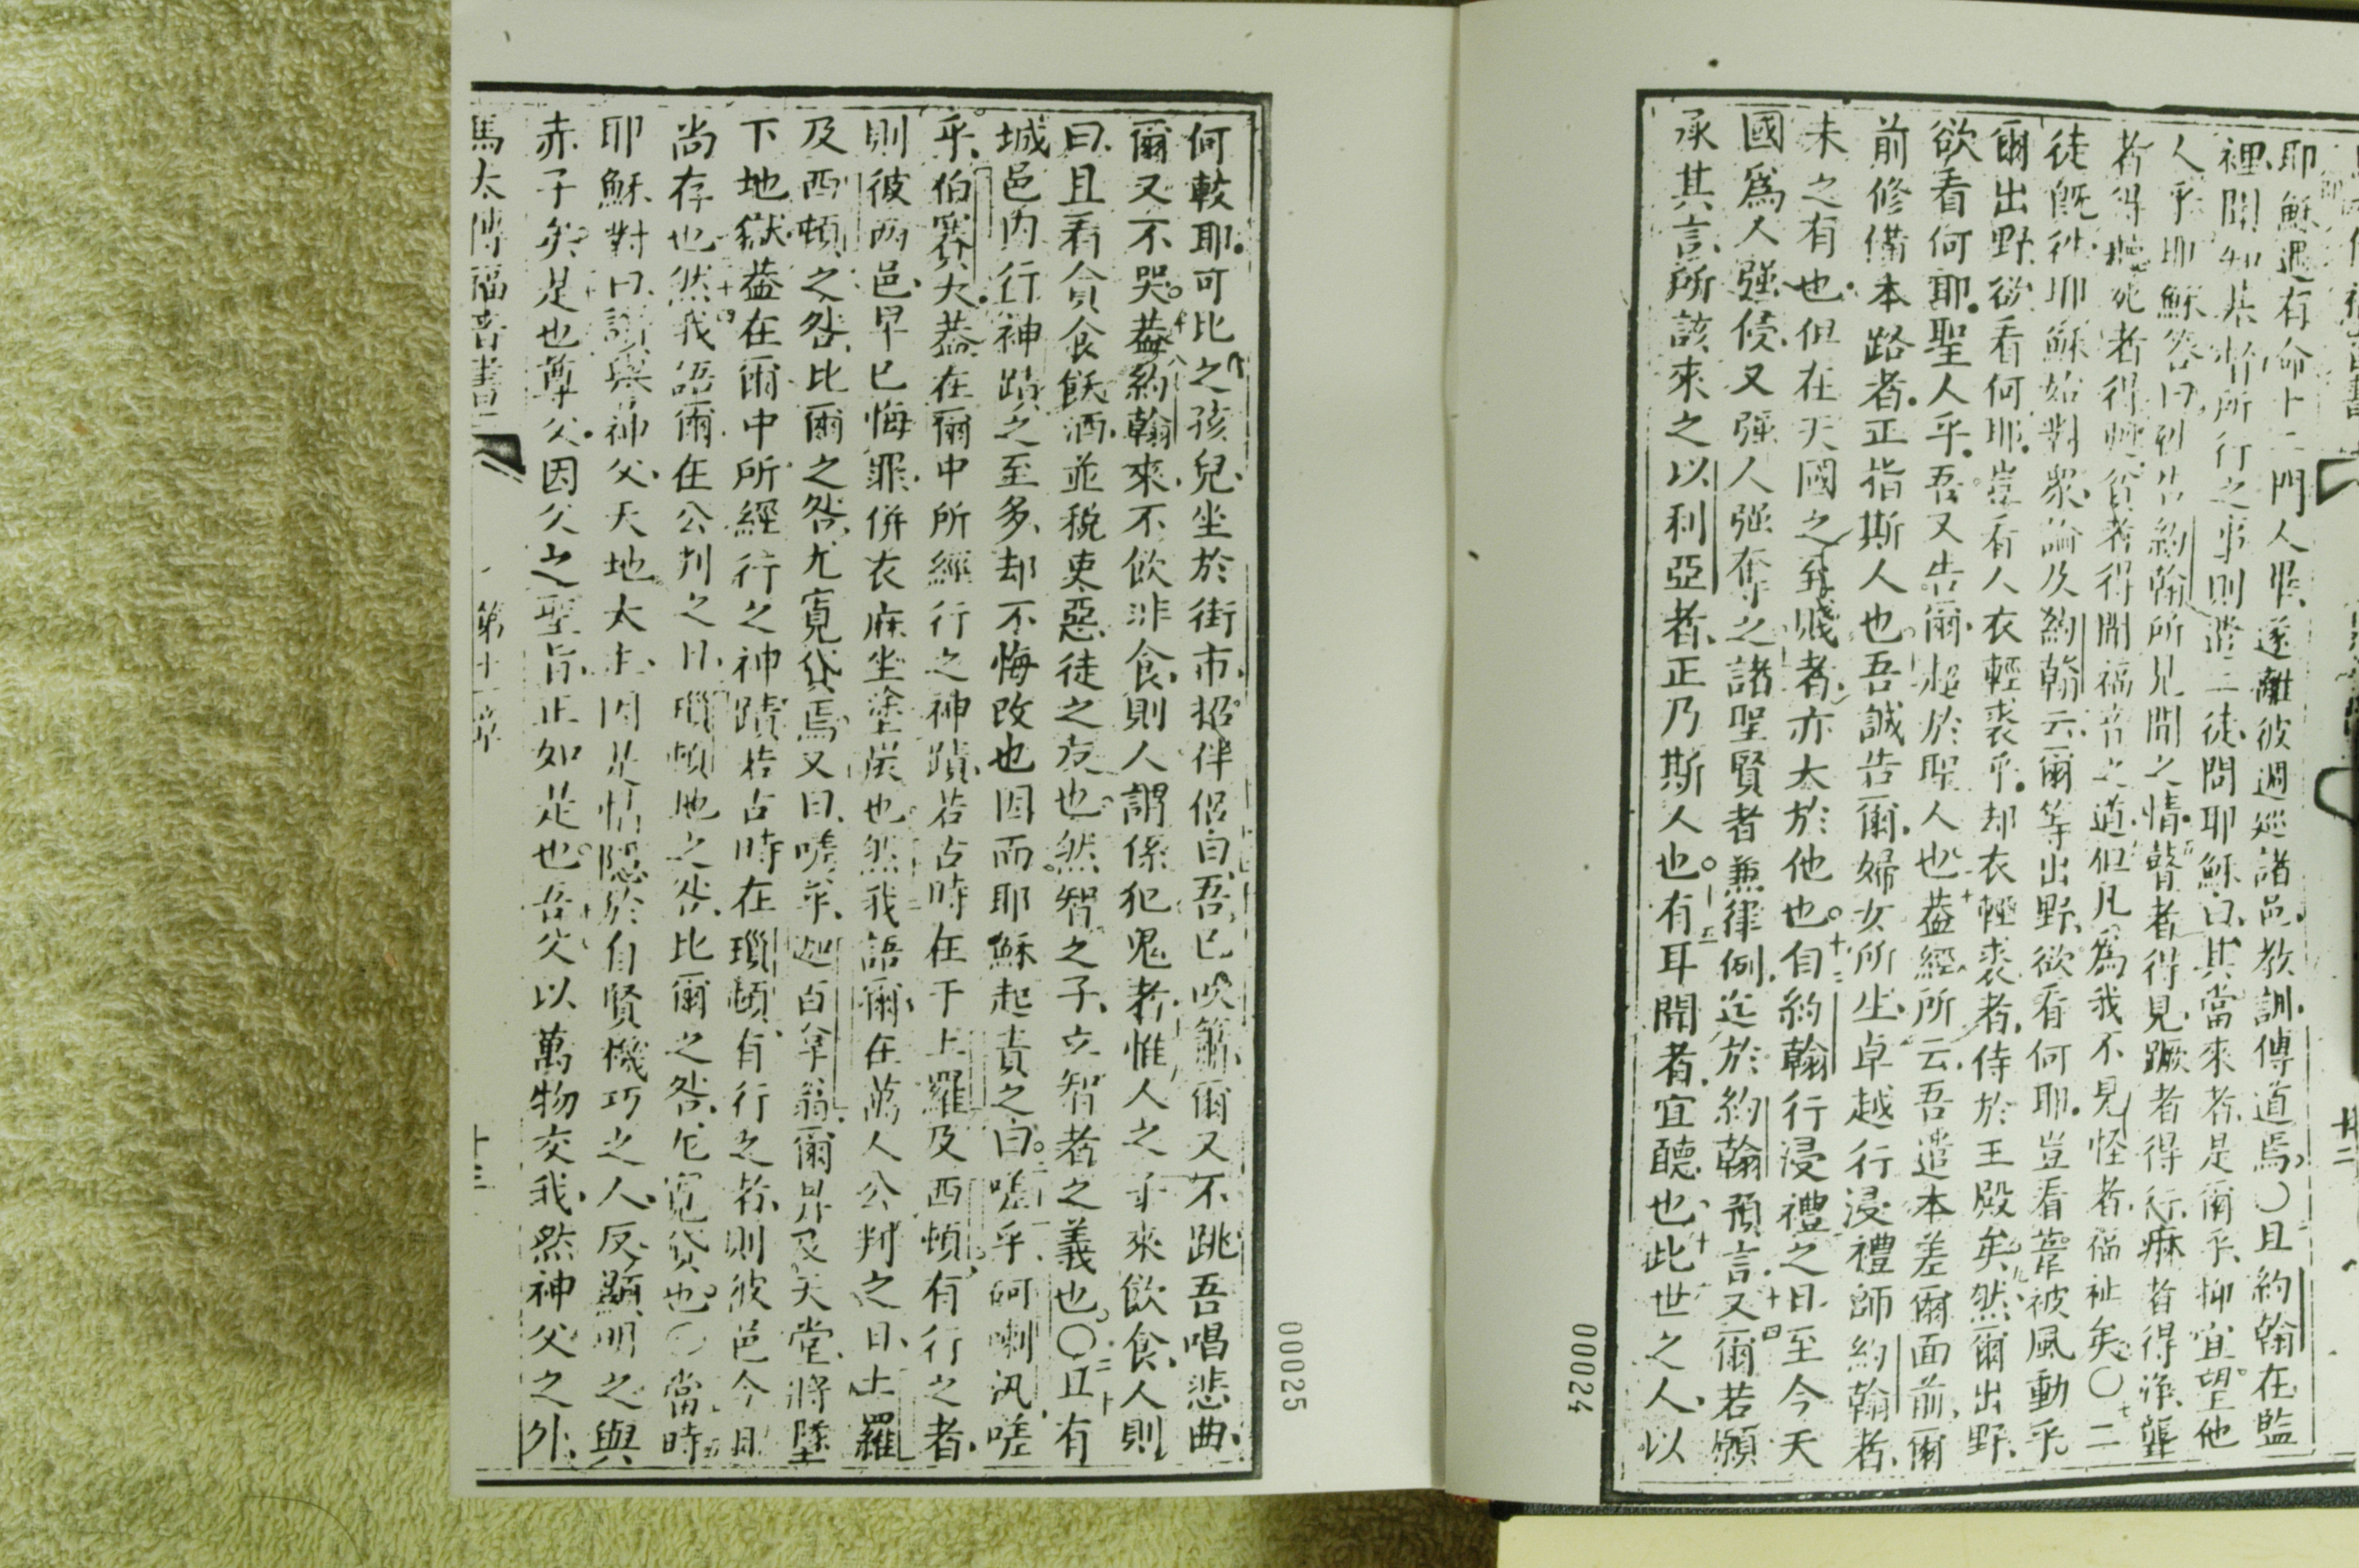 耶穌遇有命十二門人畢遂離彼週廵諸邑教訓傳道焉〇且約翰在監
裡聞知基督所行之事則遣二徒問耶穌曰其當來者是爾乎抑宜望他
人乎耶穌答曰到告約翰所見聞之情瞽者得見蹶者得行痳者得淨聾
者得聽死者得甦貧者得聞福音之道但凡為我不見怪者福祉矣〇二
徒既徃耶穌始對眾論及約翰云爾等出野欲看何耶豈看葦被風動乎
爾出野欲看何耶豈看人衣輕裘乎却衣輕裘者侍於王殿矣然爾出野
欲看何耶聖人乎吾又告爾超於聖人也蓋經所云吾遣本差爾面前爾
前修備本路者正指斯人也吾誠告爾婦女所生卓越行浸禮師約翰者
未之有也但在天國之至賤者亦大於他也自約翰行浸禮之日至今天
國為人强侵又强人强奪之諸聖賢者兼律例迄於約翰預言又爾若願
承其言所該來之以利亞者正乃斯人也有耳聞者宜聽也此世之人以
00024
00025
何較耶可比之孩兒坐於街市招伴侶曰吾已吹簫爾又不跳吾唱悲曲
爾又不哭蓋約翰來不飲非食則人謂係犯鬼者惟人之子來飲食人則
曰且看貪食飫酒並稅吏惡徒之友也然智之子立智者之義也〇正有
城邑內行神蹟之至多却不悔改也因而耶穌起責之曰嗟乎哬喇汛嗟
乎伯賽大蓋在爾中所經行之神蹟若古時在于土羅及西頓有行之者
則彼兩邑早已悔罪併衣麻坐塗炭也然我語爾在萬人公判之日土羅
及西頓之咎比爾之咎尤寬貸焉又曰嗟乎迦百拿翁爾昇及天堂將墜
下地獄蓋在爾中所經行之神蹟若古時在瑣頓有行之者則彼邑今日
尚存也然我語爾在公判之日瑣頓地之咎比爾之咎尤寬貸也〇當時
耶穌對曰謝與神父天地大主因是情隱於自賢機巧之人反顯明之與
赤子矣是也尊父因父之聖旨正如是也吾父以萬物交我然神父之外
馬太傳福音書 第十一章 十三